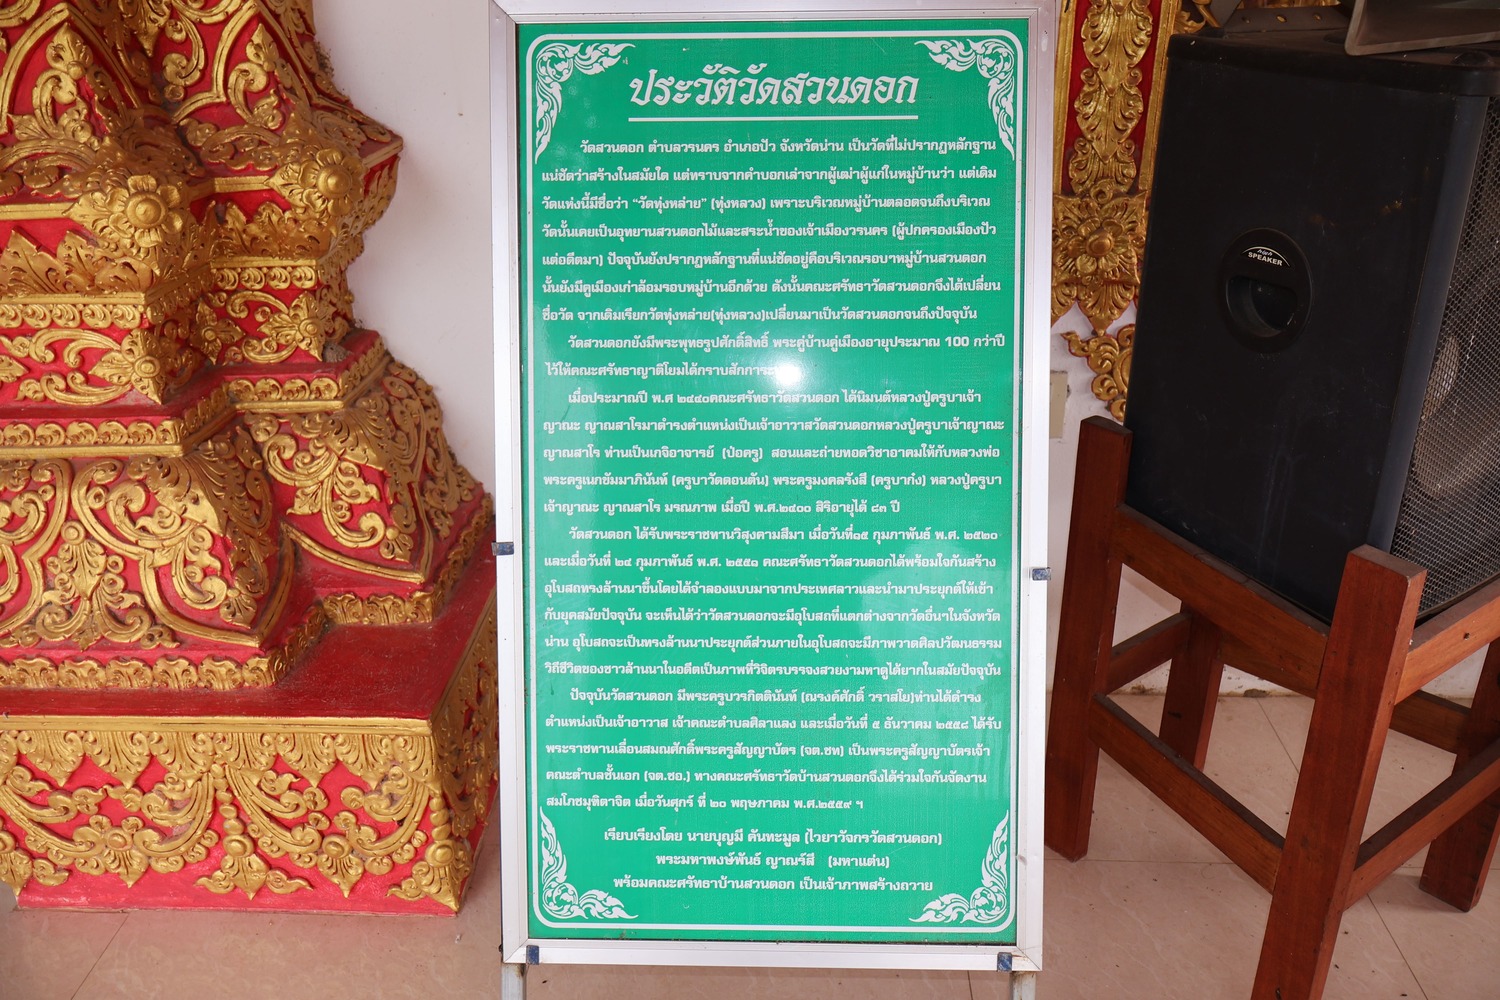 ประวัติวัดสวนดอก
วัดสวนดอก ตำบลวรนคร อำเภอปัว จังหวัดน่าน เป็นวัดที่ไม่ปรากฏหลักฐาน
แน่ชัดว่าสร้างในสมัยใด แต่ทราบจากคำบอกเล่าจากผู้เฒ่าผู้แก่ในหมู่บ้านว่า แต่เดิม
วัดแห่งนี้มีชื่อว่า “วัดทุ่งหล่าย” (ทุ่งหลวง) เพราะบริเวณหมู่บ้านตลอดจนถึงบริเวณ
วัดนั้นเคยเป็นอุทยานสวนดอกไม้และสระน้ำของเจ้าเมืองวรนคร (ผู้ปกครองเมืองปัว
แต่อดีตมา) ปัจจุบันยังปรากฏหลักฐานที่แน่ชัดอยู่คือบริเวณรอบๆหมู่บ้านสวนดอก
นั้นยังมีคูเมืองเก่าล้อมรอบหมู่บ้านอีกด้วย ดังนั้นคณะศรัทธาวัดสวนดอกจึงได้เปลี่ยน
ชื่อวัด จากเดิมเรียกวัดทุ่งหล่าย(ทุ่งหลวง)เปลี่ยนมาเป็นวัดสวนดอกจนถึงปัจจุบัน
วัดสวนดอกยังมีพระพุทธรูปศักดิ์สิทธิ์ พระคู่บ้านคู่เมืองอายุประมาณ 100 กว่าปี
ไว้ให้คณะศรัทธาญาติโยมได้กราบสักการะ
เมื่อประมาณปี พ.ศ ๒๔๔๐คณะศรัทธาวัดสวนดอก ได้นิมนต์หลวงปู่ครูบาเจ้า
ญาณะ ญาณสาโรมาดำรงตำแหน่งเป็นเจ้าอาวาสวัดสวนดอกหลวงปู่ครูบาเจ้าญาณะ
ญาณสาโร ท่านเป็นเกจิอาจารย์ (ป่อครู) สอนและถ่ายทอดวิชาอาคมให้กับหลวงพ่อ
พระครูเนกขัมมาภินันท์ (ครูบาวัดดอนตัน) พระครูมงคลรังสี (ครูบาก๋ง) หลวงปู่ครูบา
เจ้าญาณะ ญาณสาโร มรณภาพ เมื่อปี พ.ศ.๒๔๐๐ สิริอายุได้ ๘๓ ปี
วัดสวนดอก ได้รับพระราชทานวิสุงคามสีมา เมื่อวันที่๑๕ กุมภาพันธ์ พ.ศ. ๒๕๒๐
และเมื่อวันที่ ๒๔ กุมภาพันธ์ พ.ศ. ๒๕๕๑ คณะศรัทธาวัดสวนดอกได้พร้อมใจกันสร้าง
อุโบสถทรงล้านนาขึ้นโดยได้จำลองแบบมาจากประเทศลาวและนำมาประยุกต์ให้เข้า
กับยุคสมัยปัจจุบัน จะเห็นได้ว่าวัดสวนดอกจะมีอุโบสถที่แตกต่างจากวัดอื่นๆในจังหวัด
น่าน อุโบสถจะเป็นทรงล้านนาประยุกต์ส่วนภายในอุโบสถจะมีภาพวาดศิลปวัฒนธรรม
วิถีชีวิตของชาวล้านนาในอดีตเป็นภาพที่วิจิตรบรรจงสวยงามหาดูได้ยากในสมัยปัจจุบัน
ปัจจุบันวัดสวนดอก มีพระครูบวรกิตตินันท์ (ณรงค์ศักดิ์ วราสโย)ท่านได้ดำรง
ตำแหน่งเป็นเจ้าอาวาส เจ้าคณะตำบลศิลาแลง และเมื่อวันที่ ๕ ธันวาคม ๒๕๕๘ ได้รับ
พระราชทานเลื่อนสมณศักดิ์พระครูสัญญาบัตร (จต.ชท) เป็นพระครูสัญญาบัตรเจ้า
คณะตำบลชั้นเอก (จต.ชอ.) ทางคณะศรัทธาวัดบ้านสวนดอกจึงได้ร่วมใจกันจัดงาน
สมโภชมุทิตาจิต เมื่อวันศุกร์ ที่ ๒๐ พฤษภาคม พ.ศ.๒๕๕๙ ฯ
เรียบเรียงโดย นายบุญมี คันทะมูล (ไวยาวัจกรวัดสวนดอก)
พระมหาพงษ์พันธ์ ญาณรํสี (มหาแต่น)
พร้อมคณะศรัทธาบ้านสวนดอก เป็นเจ้าภาพสร้างถวาย
SPEAKER